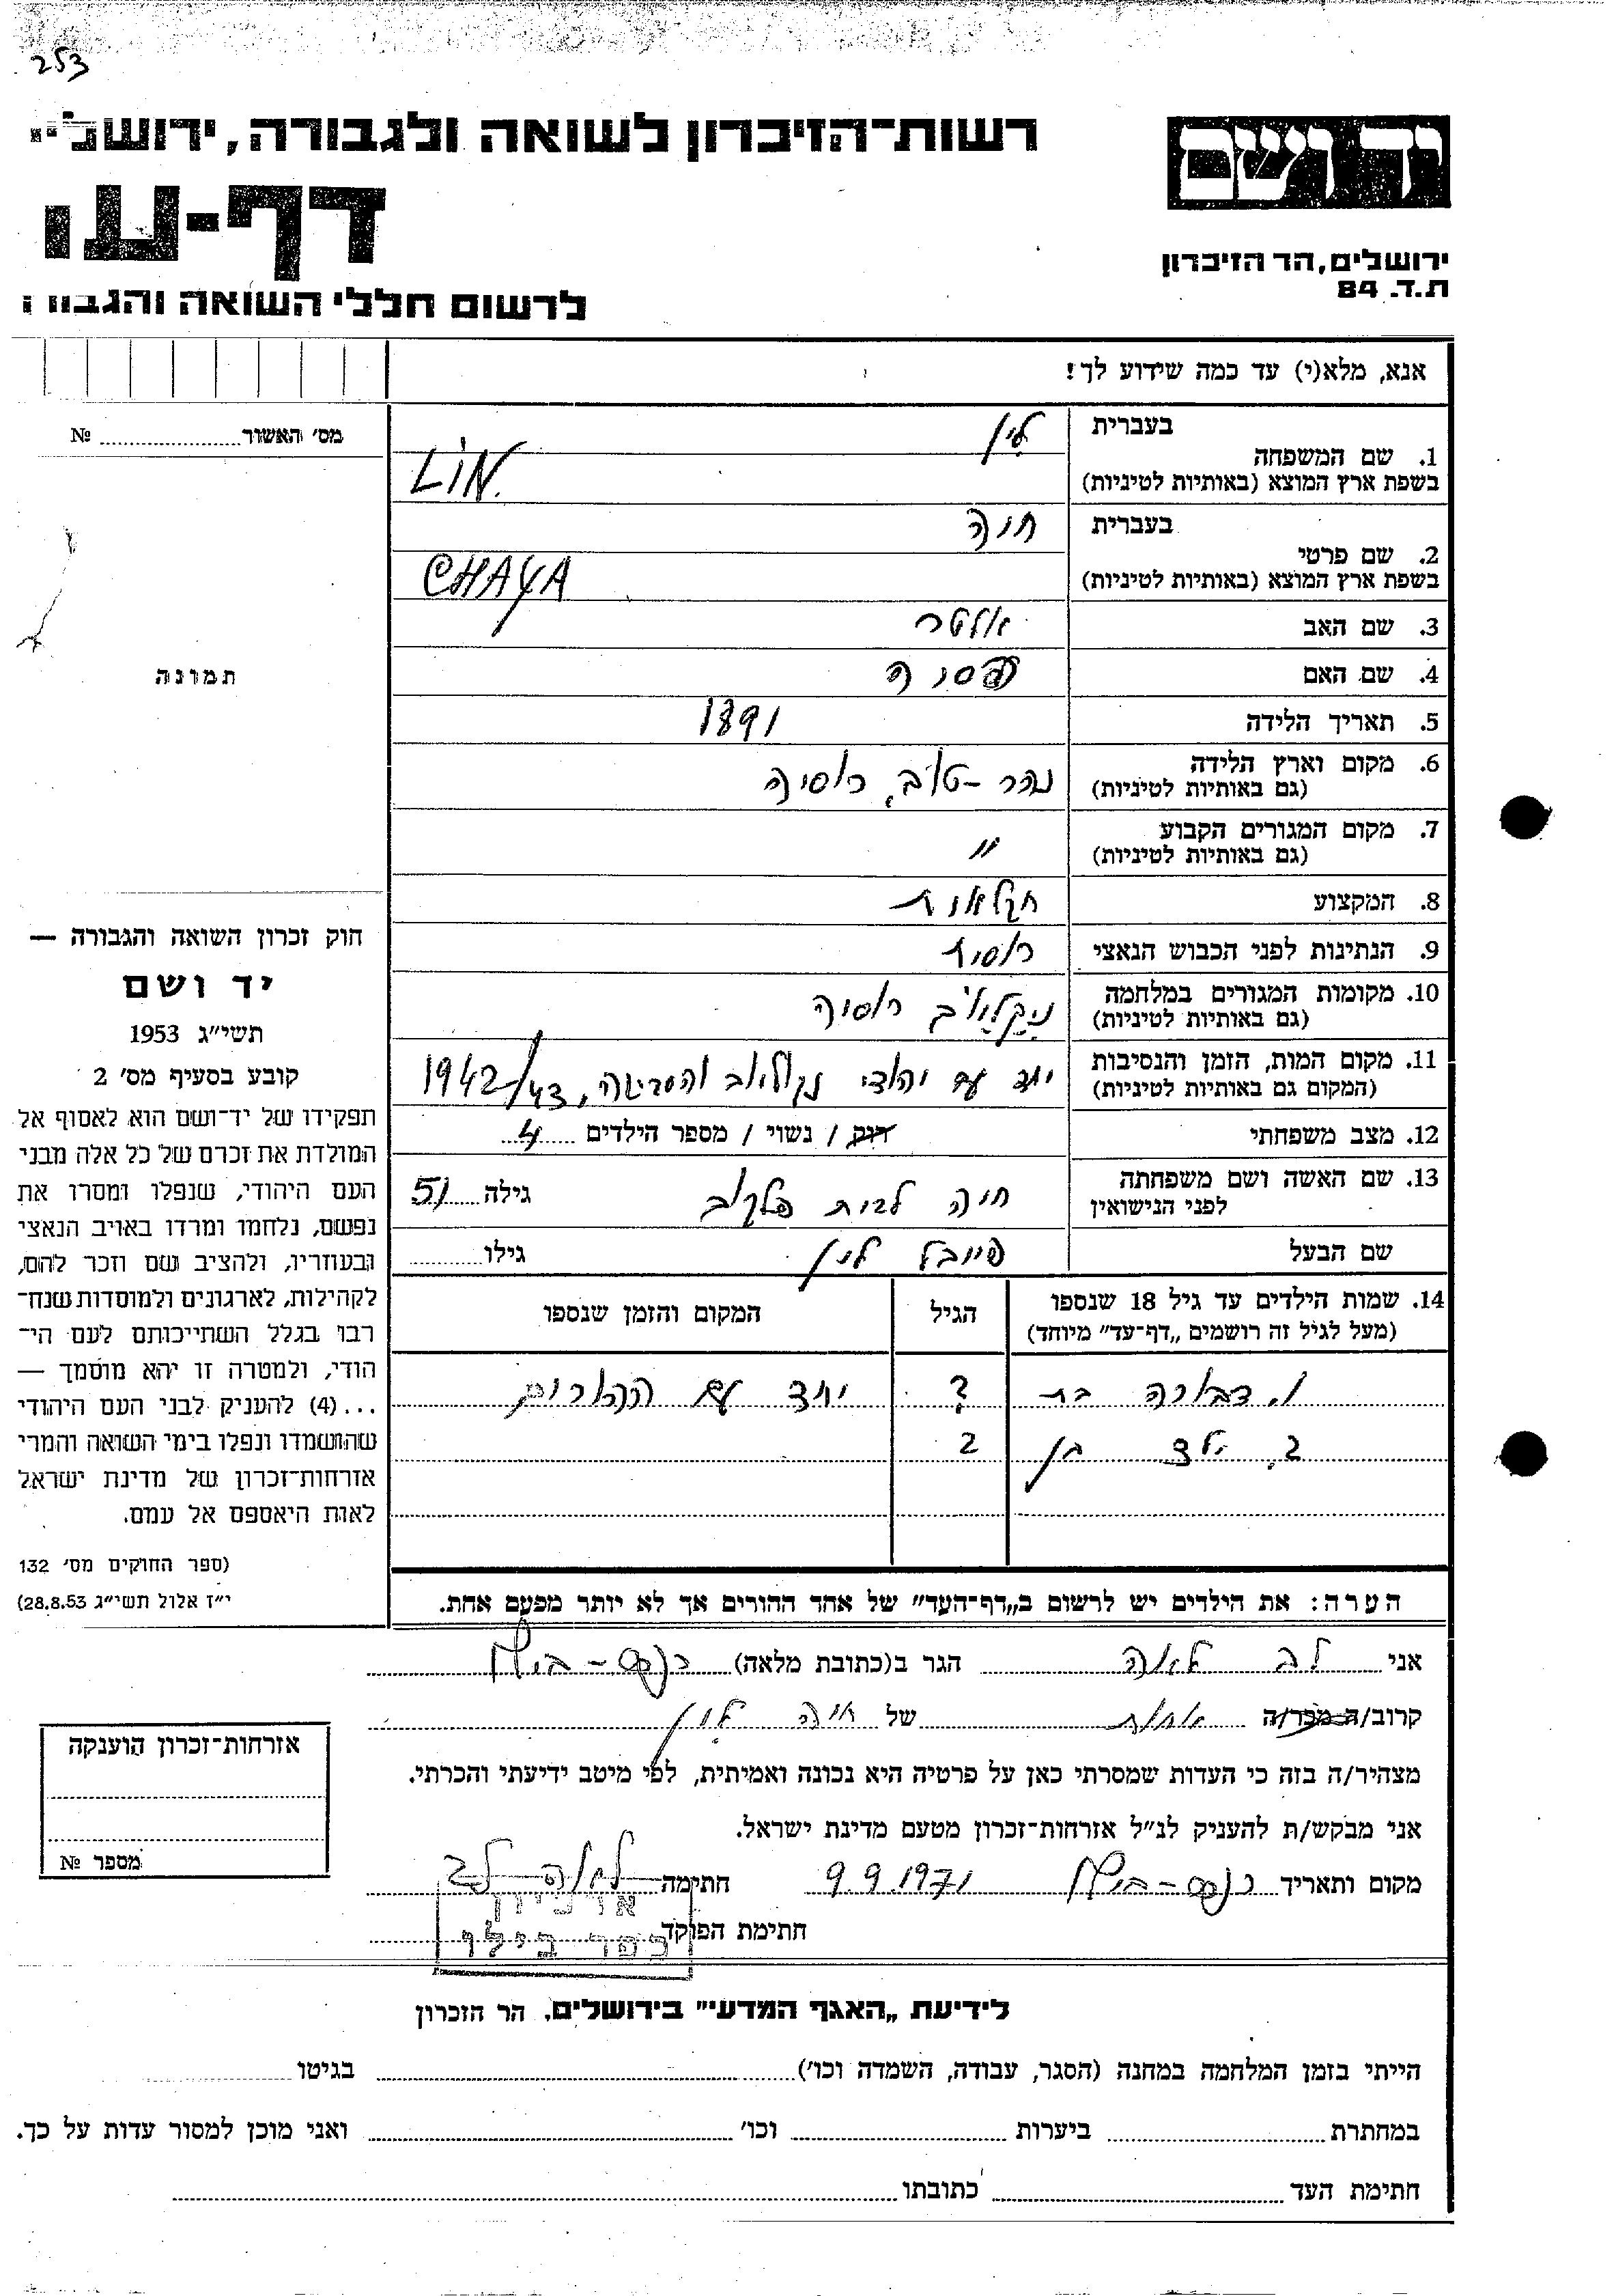 253
רשות-הזיכרון לשואה ולגבורה, ירושלי
יד ושם
דף-ע
ירושלים, הר הזיכרון
ת.ד. 84
לרשום חללי השואה והגבו
אנא, מלא(י) עד כמה שידוע לך!
מס׳ האשור № 
בעברית לין
1. שם המשפחה
בשפת ארץ המוצא (באותיות לטיניות) LIN.
בעברית חיה
2. שם פרטי
בשפת ארץ המוצא (באותיות לטיניות) CHAYA
3. שם האב אלטר
4. שם האם
תמונה
5. תאריך הלידה 1891
6. מקום וארץ הלידה נהר-טוב, רוסיה
(גם באותיות לטיניות)
7. מקום המגורים הקבוע "
(גם באותיות לטיניות)
8. המקצוע חקלאות
9. הנתינות לפני הכבוש הנאצי רוסית
10. מקומות המגורים במלחמה ניקלאיב רוסיה
(גם באותיות לטיניות)
11. מקום המות, הזמן והנסיבות יחד עם יהודי נקולאיב והסביבה, 1942/43
(המקום גם באותיות לטיניות)
12. מצב משפחתי רוק / נשוי / מספר הילדים 4
13. שם האשה ושם משפחתה חיה לבית פלקוב גילה 51
לפני הנישואין
שם הבעל פייבל לין גילו
14. שמות הילדים עד גיל 18 שנספו הגיל המקום והזמן שנספו
(מעל לגיל זה רושמים „דף-עד״ מיוחד)
1. דבורה בת ? יחד עם ההורים
2. ילד בן ?
חוק זכרון השואה והגבורה —
יד ושם
תשי״ג 1953
קובע בסעיף מס׳ 2
תפקידו של יד-ושם הוא לאסוף אל
המולדת את זכרם של כל אלה מבני
העם היהודי, שנפלו ומסרו את
נפשם, נלחמו ומרדו באויב הנאצי
ובעוזריו, ולהציב שם וזכר להם,
לקהילות, לארגונים ולמוסדות שנח-
רבו בגלל השתייכותם לעם הי-
הודי, ולמטרה זו יהא מוסמך —
...(4) להעניק לבני העם היהודי
שהושמדו ונפלו בימי השואה והמרי
אזרחות-זכרון של מדינת ישראל
לאות היאספם אל עמם.
(ספר החוקים מס׳ 132
י״ז אלול תשי״ג 28.8.53)
הערה: את הילדים יש לרשום ב„דף-העד״ של אחד ההורים אך לא יותר מפעם אחת.
אני לב לאה הגר ב(כתובת מלאה)
קרוב/ה מכר/ה אחות של חיה לין
מצהיר/ה בזה כי העדות שמסרתי כאן על פרטיה היא נכונה ואמיתית, לפי מיטב ידיעתי והכרתי.
אני מבקש/ת להעניק לנ״ל אזרחות-זכרון מטעם מדינת ישראל.
מקום ותאריך 9.9.1971 חתימה לאה לב
חתימת הפוקד
כפר בילו
אזרחות-זכרון הוענקה
מספר №
לידיעת „האגף המדעי״ בירושלים. הר הזכרון
הייתי בזמן המלחמה במחנה (הסגר, עבודה, השמדה וכו׳) בגיטו
במחתרת ביערות וכו׳ ואני מוכן למסור עדות על כך.
חתימת העד כתובתו